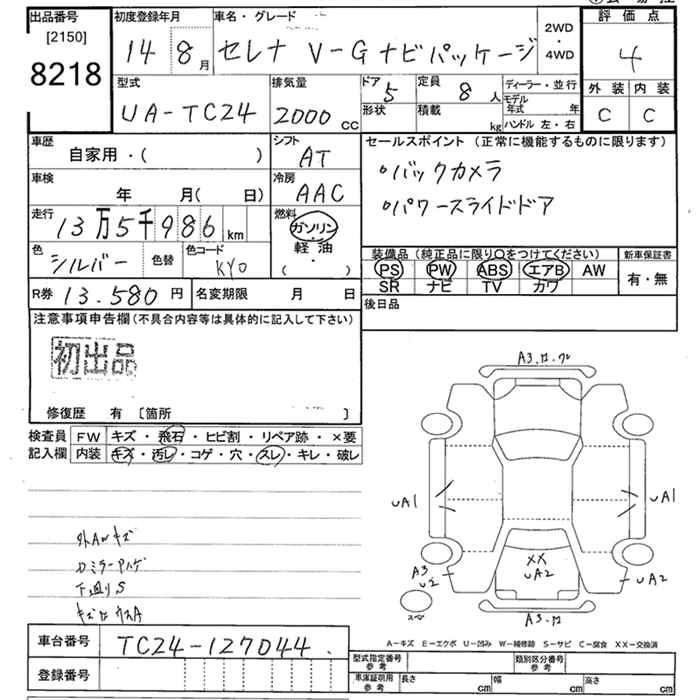 出品番号 [2150] 8218
初度登録年月 14 8月
車名・グレード セレナ V-G ナビパッケージ
2WD・4WD
評価点 4
型式 UA-TC24
排気量 2000 cc
ドア形状 5
定員 8 人
積載 kg
ディーラー・並行
モデル年式 年
ハンドル 左・右
外装 内装
C C
車歴 自家用・( )
シフト AT
セールスポイント (正常に機能するものに限ります)
バックカメラ
パワースライドドア
車検 年 月( 日)
冷房 AAC
走行 13万5千986 km
燃料 ガソリン・軽油・( )
色 シルバー 色替 色コード KY0
装備品 (純正品に限り○をつけてください)
PS PW ABS エアB AW
SR ナビ TV カワ
新車保証書 有・無
R券 13.580円 名変期限 月 日
後日品
注意事項申告欄 (不具合内容等は具体的に記入して下さい)
初出品
修復歴 有 〔箇所 〕
検査員記入欄
FW キズ・飛石・ヒビ割・リペア跡・×要
内装 キズ・汚レ・コゲ・穴・スレ・キレ・破レ
A3
UA1 UA1
XX
UA2
A3
UA2
A3
下廻りS
A-キズ E-エクボ U-凹み W-補修跡 S-サビ C-腐食 XX-交換済
車台番号 TC24-127044
登録番号
型式指定番号 参考 類別区分番号 参考
車庫証明用 参考 長さ cm 幅 cm 高さ cm